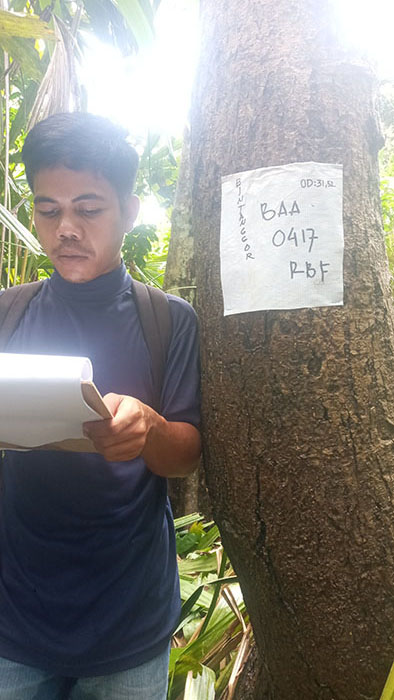 BINTANGGOR
OD:31,52
BAA
0417
RBF